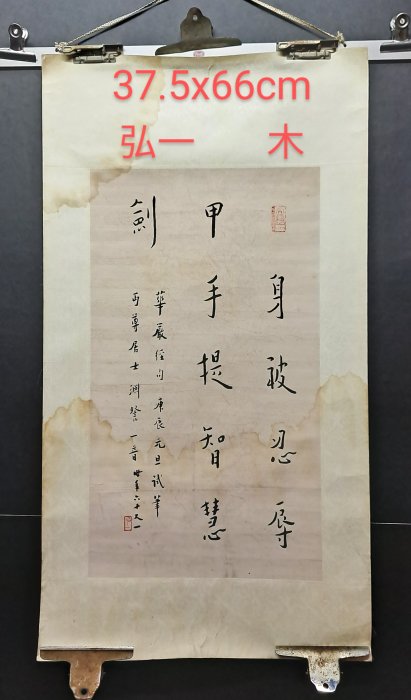 37.5x66cm
弘一 木
身被忍辱
甲手提智慧
劍
華嚴經句 庚辰元旦試筆
丏尊居士 一音 年六十又一